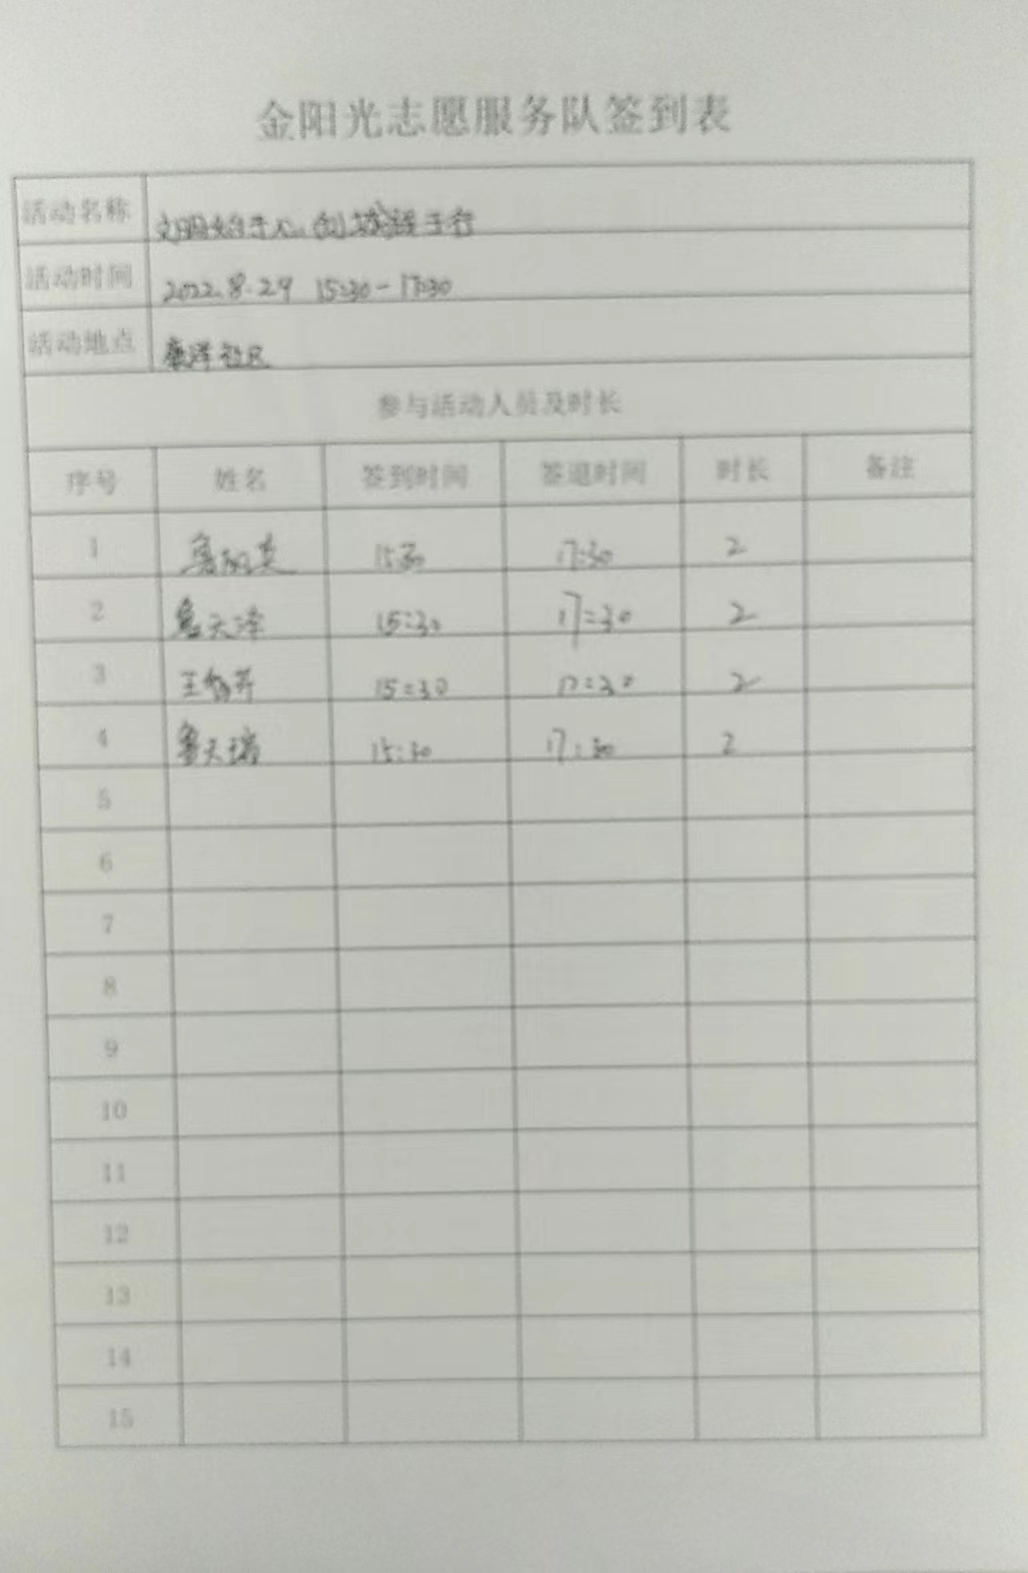 金阳光志愿服务队签到表
活动名称 文明始于心 创城践于行
活动时间 2022.8.29 15:30-17:30
活动地点 康洋社区
参与活动人员及时长
序号 姓名 签到时间 签退时间 时长 备注
1 15:30 17:30 2
2 鲁天泽 15:30 17:30 2
3 15:30 17:30 2
4 鲁天瑞 15:30 17:30 2
5
6
7
8
9
10
11
12
13
14
15